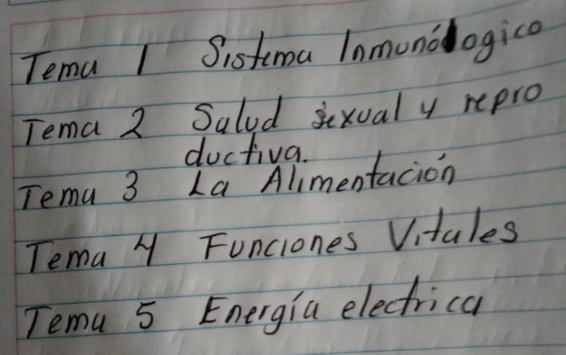 Tema 1 Sistema Inmunólogico
Tema 2 Salud sexual y repro
ductiva.
Tema 3 La Alimentación
Tema 4 Funciones Vitales
Tema 5 Energía electrica